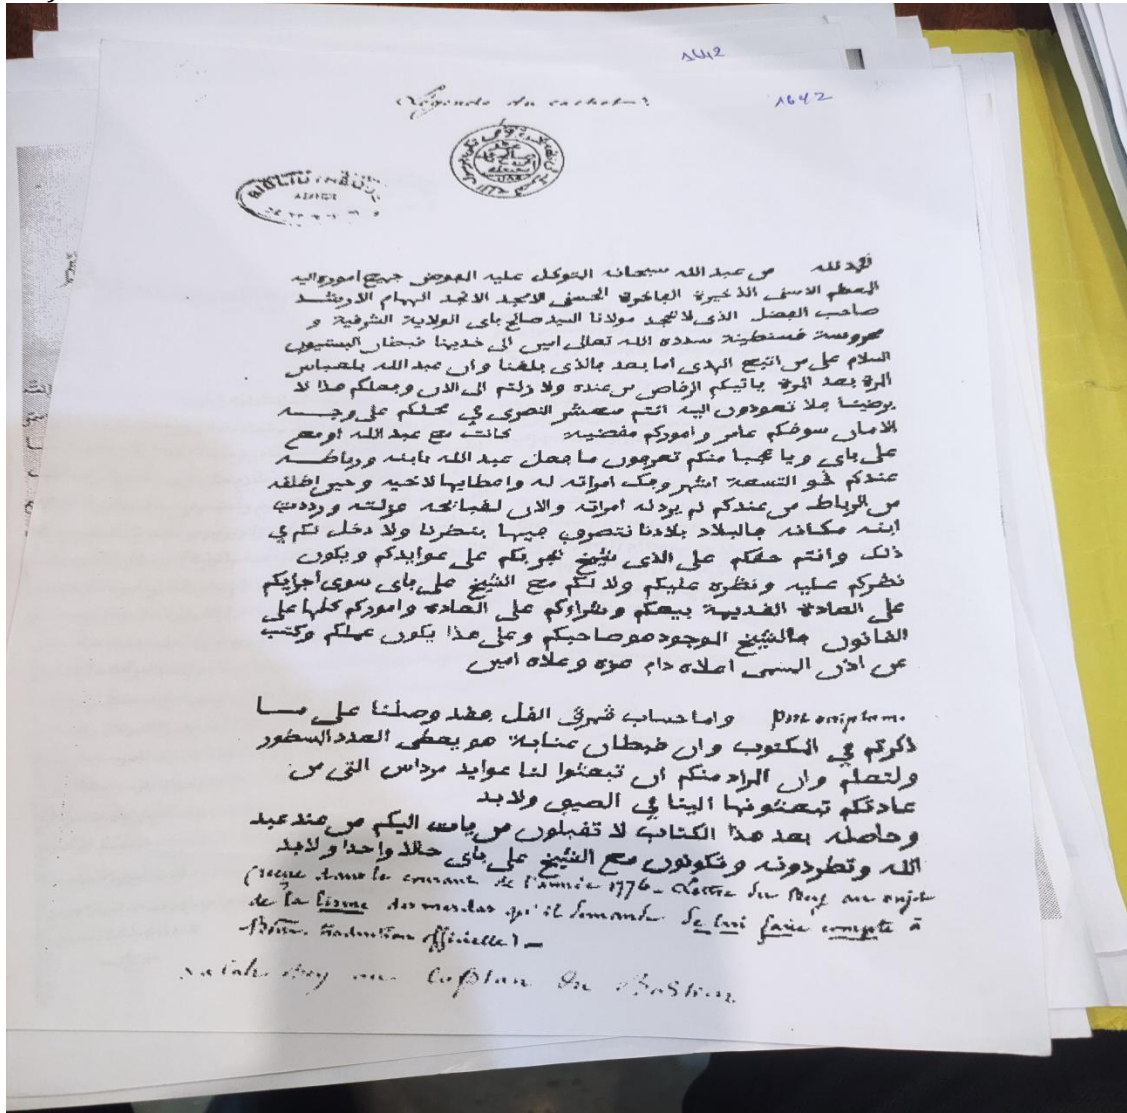 1642
1642
Légende du cachet
BIBLIOTHÈQUE
ALGER
الحمد لله من عبد الله سبحانه المتوكل عليه المفوض جميع اموره اليه
المعظم الاسنى الذخيرة الفاخرة الحسنى الامجد الانجد الهمام الارشد
صاحب الفضل الذى لا يجحد مولانا السيد صالح باى الولاية الشرقية و
محروسة قسنطينة سدده الله تعالى امين الى خديمنا قبطان البستيون
السلام على من اتبع الهدى أما بعد فالذى بلغنا وأن عبد الله بلعباس
المرة بعد المرة ياتيكم الرقاص من عنده ولا زلتم الى الان وفعلكم هذا لا
يرضينا فلا تعودون اليه انتم معشر النصرى في محلكم على وجه
الامان سوقكم عامر واموركم مقضية كانت مع عبد الله او مع
على باى ويا عجبا منكم تعرفون ما فعل عبد الله بابنه ورباطه
عندكم نحو التسعة اشهر وفك امراته له واعطايها لاخيه وحين اطلقه
من الرباط من عندكم لم يرد له امراته والان لقبائحه عزلته ورددت
ابنه مكانه فالبلاد بلادنا نتصرف فيها بنضرنا ولا دخل لكم في
ذلك وانتم حقكم على الذى شيخ نجريكم على عوايدكم ويكون
نضركم عليه ونظره عليكم ولا لكم مع الشيخ على باى سوى اجرايكم
على العادة القديمة بيعكم وشراءكم على العادة واموركم كلها على
القانون فالشيخ الموجود هو صاحبكم وعلى هذا يكون عملكم وكتب
عن اذن المسمى اعلاه دام عزه وعلاه امين
Post scriptum. واما حساب الفل فقد وصلنا على مـا
ذكركم في المكتوب وان قبطان عنابة هو يعطى العدد المسطور
ولتعلم وان المراد منكم ان تبعثوا لنا عوايد مرداس التى من
عادتكم تبعثونها الينا في الصيف ولا بد
وحاصله بعد هذا الكتاب لا تقبلون من ياتى اليكم من عند عبد
الله وتطردونه وتكونون مع الشيخ على باى حالة واحدا ولا بد
(reçue dans le courant de l'année 1776 - Lettre du Bey au sujet
de la lisme des merdas qu'il demande de lui faire compte à
Bône. traduction officielle) —
Salah Bey au Captan du Bastion